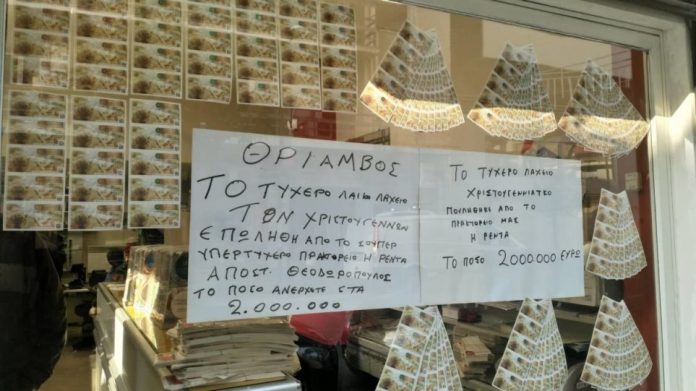 ΘΡΙΑΜΒΟΣ
ΤΟ ΤΥΧΕΡΟ ΛΑΙΚΟ ΛΑΧΕΙΟ
ΤΩΝ ΧΡΙΣΤΟΥΓΕΝΝΩΝ
ΕΠΩΛΗΘΗ ΑΠΟ ΤΟ ΣΟΥΠΕΡ
ΥΠΕΡΤΥΧΕΡΟ ΠΡΑΚΤΟΡΕΙΟ Η ΡΕΝΤΑ
ΑΠΟΣΤ. ΘΕΟΔΩΡΟΠΟΥΛΟΣ
ΤΟ ΠΟΣΟ ΑΝΕΡΧΟΤΕ ΣΤΑ
2.000.000
ΤΟ ΤΥΧΕΡΟ ΛΑΧΕΙΟ
ΧΡΙΣΤΟΥΓΕΝΝΙΑΤΚΟ
ΠΟΥΛΗΘΗΚΕ ΑΠΟ ΤΟ
ΠΡΑΚΤΟΡΕΙΟ ΜΑΣ
Η ΡΕΝΤΑ
ΤΟ ΠΟΣΟ 2000.000 ΕΥΡΩ